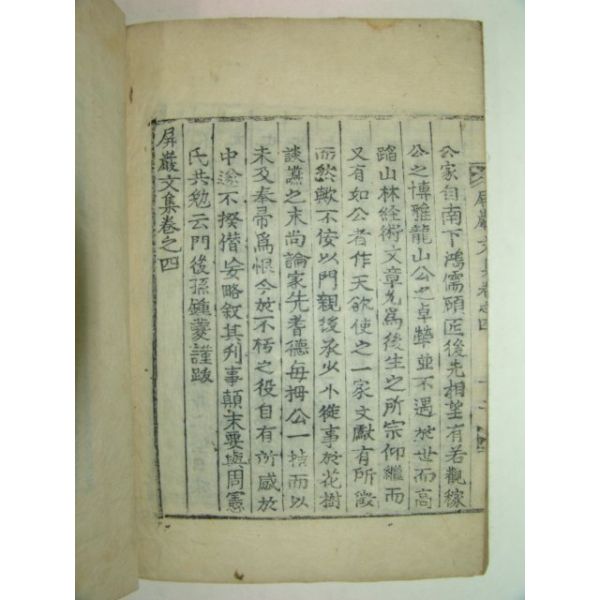 屛巖文集卷之四
公家自南下鴻儒碩匠後先相望有若觀稼
公之博雅龍山公之卓犖並不遇於世而高
蹈山林經術文章允爲後生之所宗仰繼而
又有如公者作天欲使之一家文獻有所徵
而然歟不佞以門親後承少小從事於花樹
談讌之末尙論家先耆德每拇公一指而以
未及奉帚爲恨今於不朽之役自有所感於
中遂不揆僭妄略敘其刋事顚末要與周憲
氏共勉云門後孫鍾夔謹跋
屛巖文集卷之四